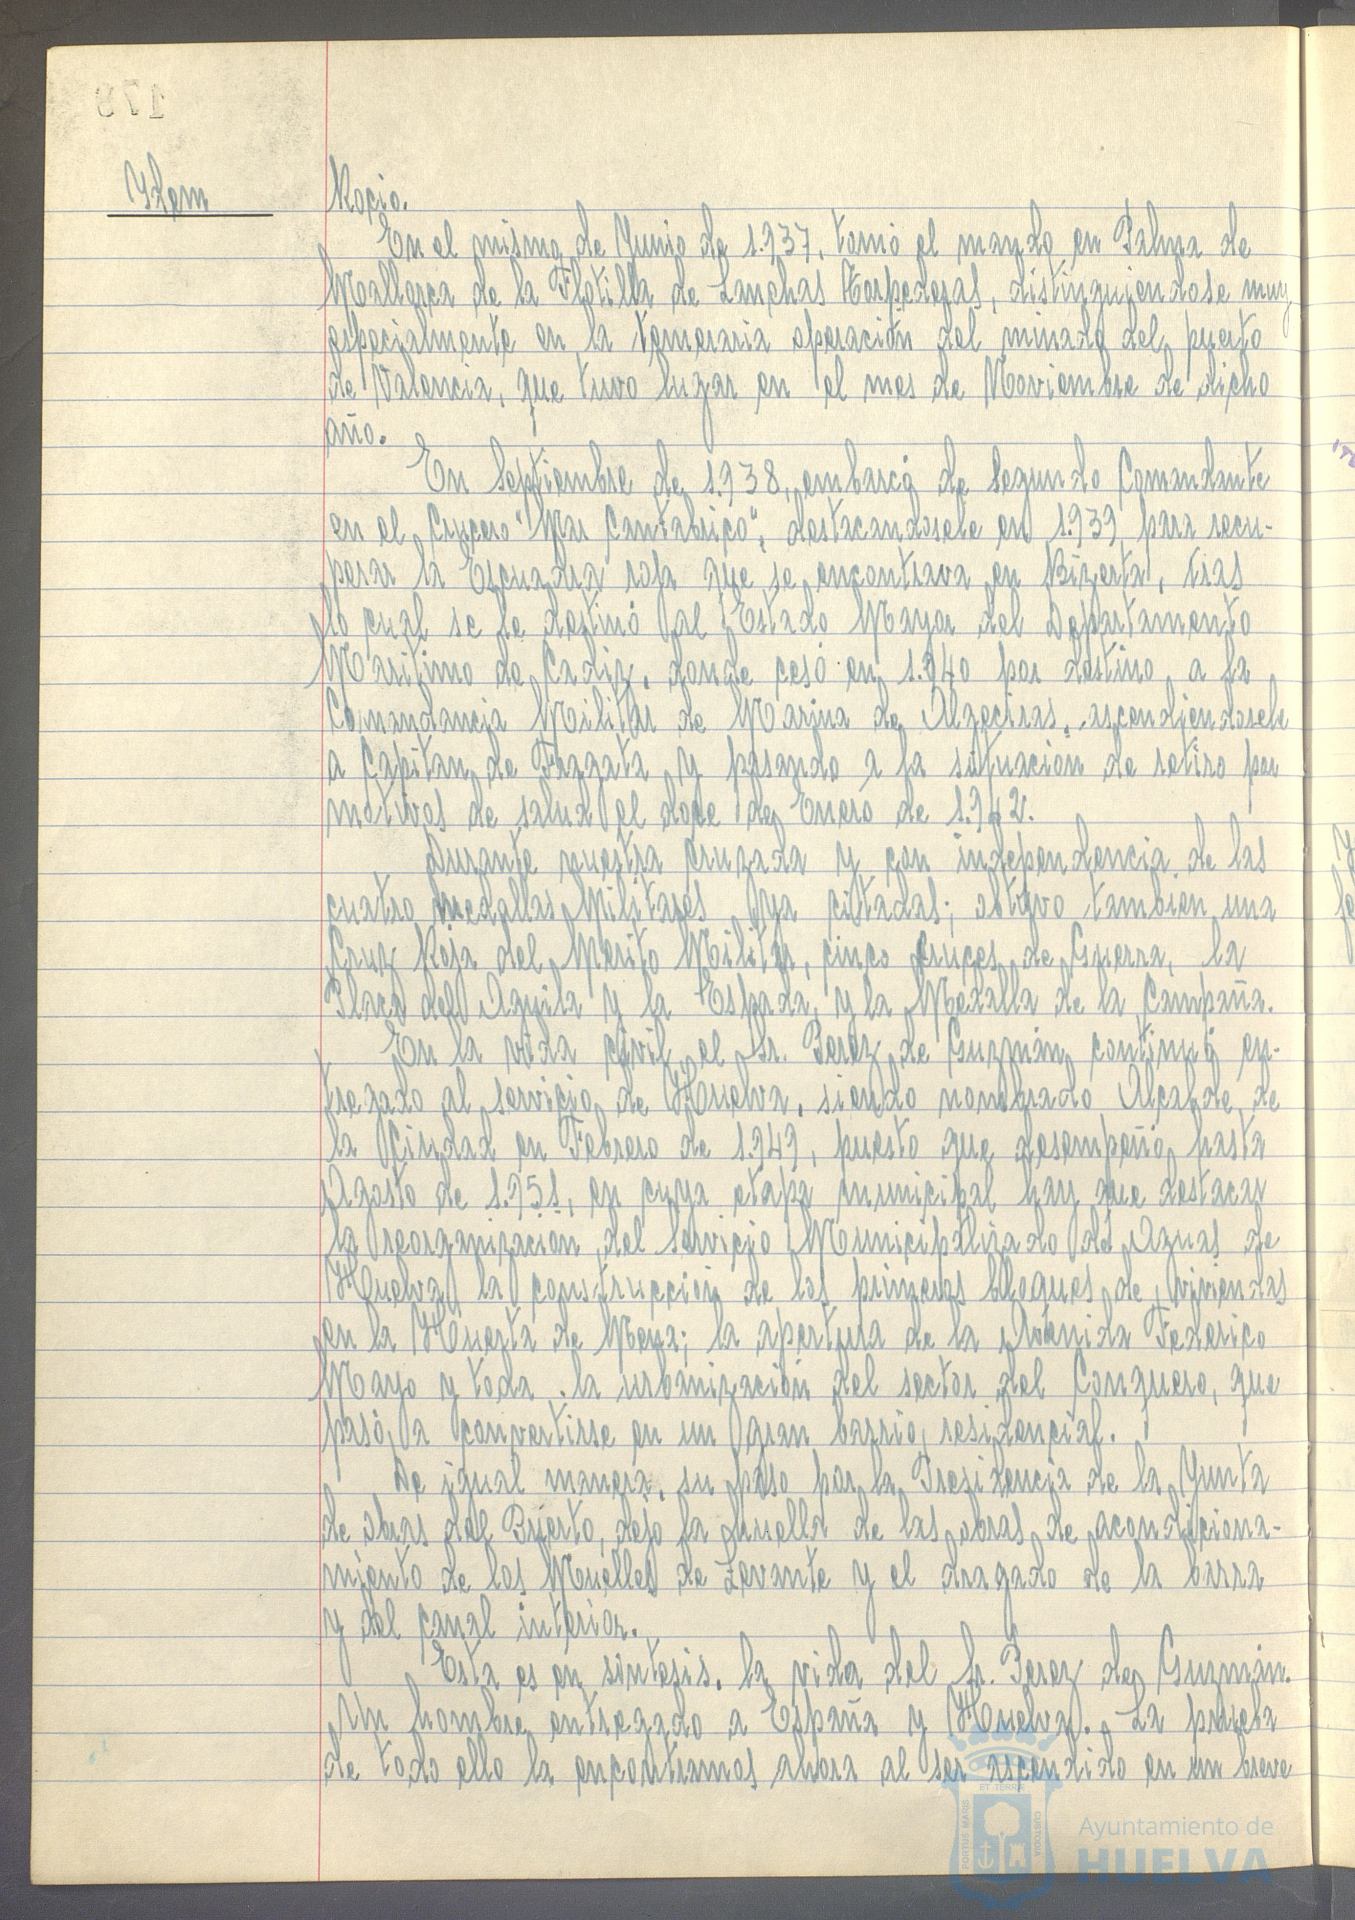 179
Ydem
Rocio.
En el mismo de Junio de 1.937, tomó el mando en Palma de
Mallorca de la Flotilla de Lanchas Torpederas, distinguiendose muy
especialmente en la temeraria operación del minado del puerto
de Valencia, que tuvo lugar en el mes de Noviembre de dicho
año.
En Septiembre de 1.938, embarcó de Segundo Comandante
en el Crucero "Mar Cantabrico", destacandosele en 1.939 para recu-
perar la Escuadra roja que se encontrava en Bizerta, tras
lo cual se le destinó al Estado Mayor del Departamento
Maritimo de Cadiz, donde cesó en 1.940 por destino a la
Comandancia Militar de Marina de Algeciras, ascendiendosele
a Capitan de Fragata y pasando a la situacion de retiro por
motivos de salud el doce de Enero de 1.942.
Durante nuestra cruzada y con independencia de las
cuatro medallas Militares ya citadas; obtuvo tambien una
Cruz Roja del Merito Militar, cinco cruces de Guerra, la
Placa del Aguila y la Espada, y la Medalla de la Campaña.
En la vida civil, el Sr. Perez de Guzmán continuó en-
tregado al servicio de Huelva, siendo nombrado Alcalde de
la Ciudad en Febrero de 1.949, puesto que desempeñó hasta
Agosto de 1.951, en cuya etapa municipal hay que destacar
la reorganización del Servicio Municipalizado de Aguas de
Huelva, la construcción de los primeros bloques de viviendas
en la Huerta de Mena; la apertura de la Avenida Federico
Mayo y toda la urbanización del sector del Conquero, que
pasó, a convertirse en un gran barrio residencial.
De igual manera, su paso por la Presidencia de la Junta
de obras del Puerto, dejo la huella de las obras de acondiciona-
miento de los Muelles de Levante y el dragado de la barra
y del canal interior.
Esta es en síntesis, la vida del Sr. Perez de Guzmán.
Un hombre entregado a España y Huelva. La prueba
de todo ello la encontramos ahora al ser ascendido en un breve
PORTUS MARIS
ET TERRAE
CUSTODIA
Ayuntamiento de
HUELVA